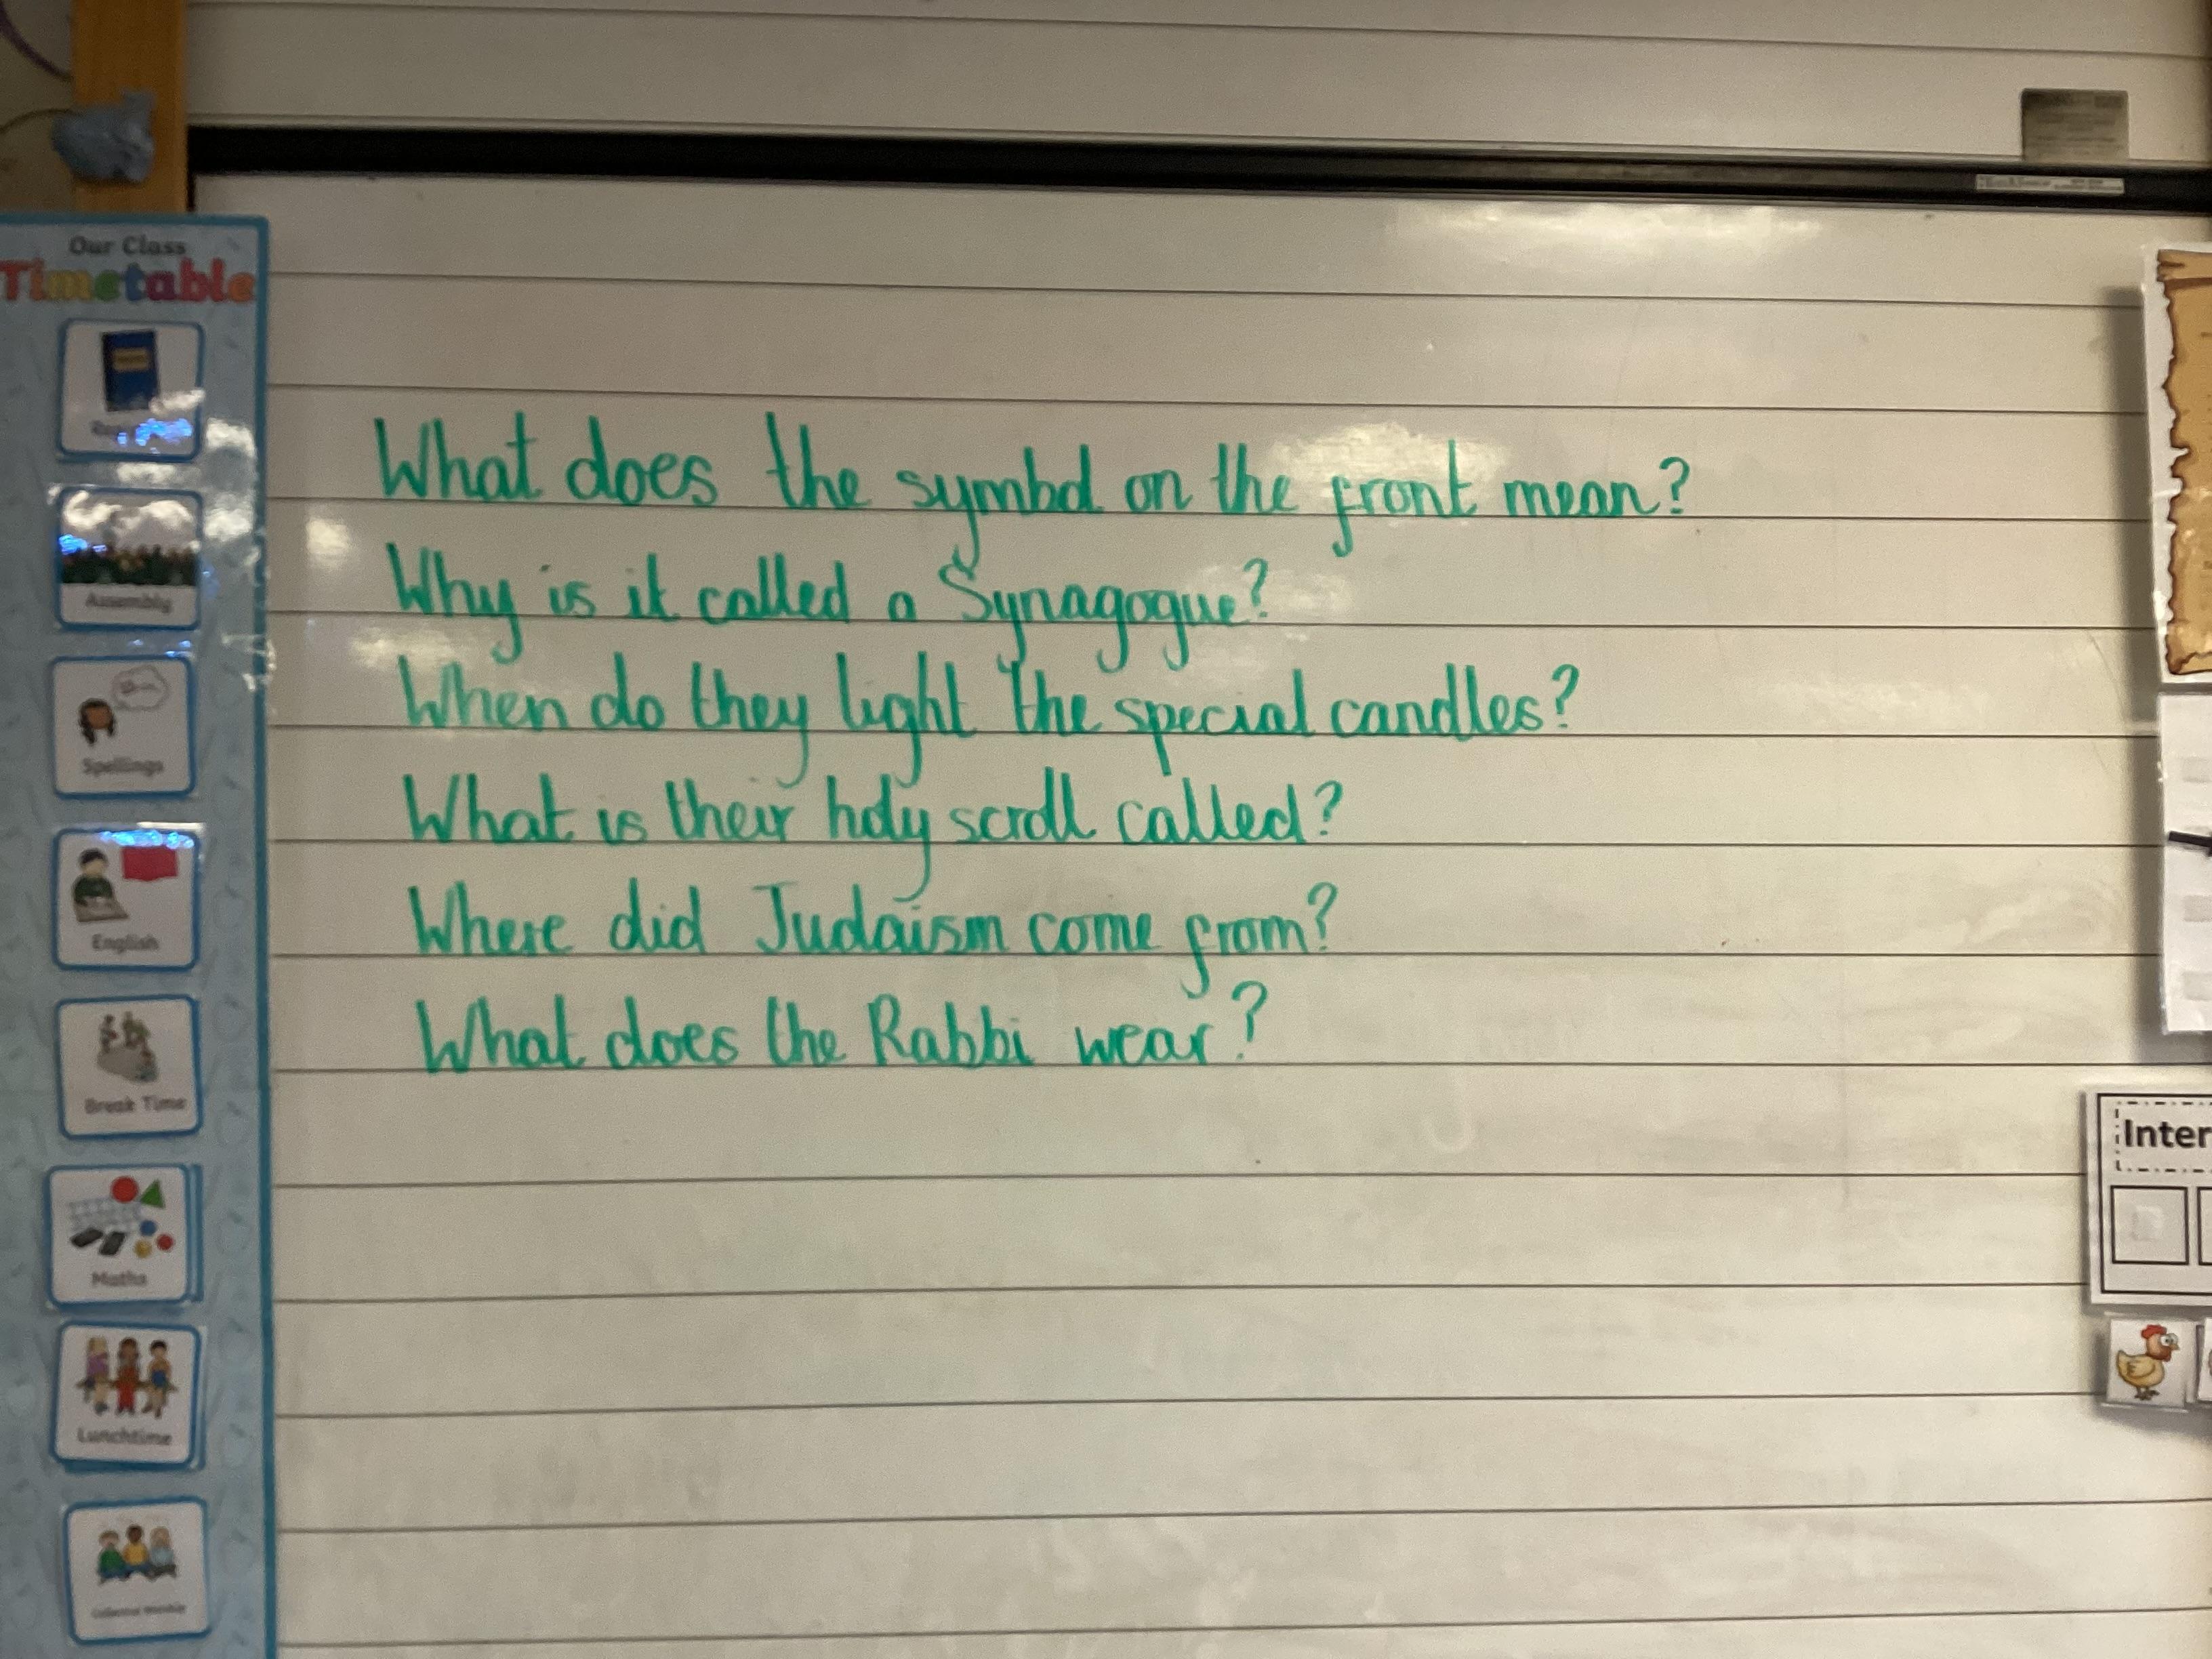 Our Class
Timetable
Assembly
Spellings
English
Break Time
Maths
Lunchtime
What does the symbol on the front mean?
Why is it called a Synagogue?
When do they light the special candles?
What is their holy scroll called?
Where did Judaism come from?
What does the Rabbi wear?
Inter